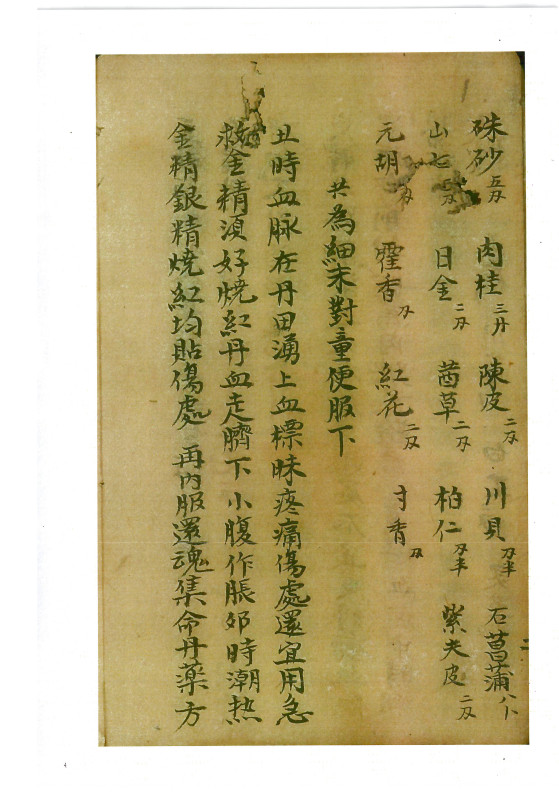 硃砂 五刄 肉桂 三刄 陳皮 二刄 川貝 刄半 石菖蒲 八卜
山七 日金 二刄 茜草 二刄 柏仁 刄半 紫夫皮 二刄
元胡 藿香 刄 紅花 二刄 寸香 刄
共為細末對童便服下
丑時血脉在丹田湧上血標昧疼痛傷處還宜用急
救金精須好燒紅丹血走臍下小腹作脹卯時潮熱
金精銀精燒紅均貼傷處 再內服還魂集命丹藥方